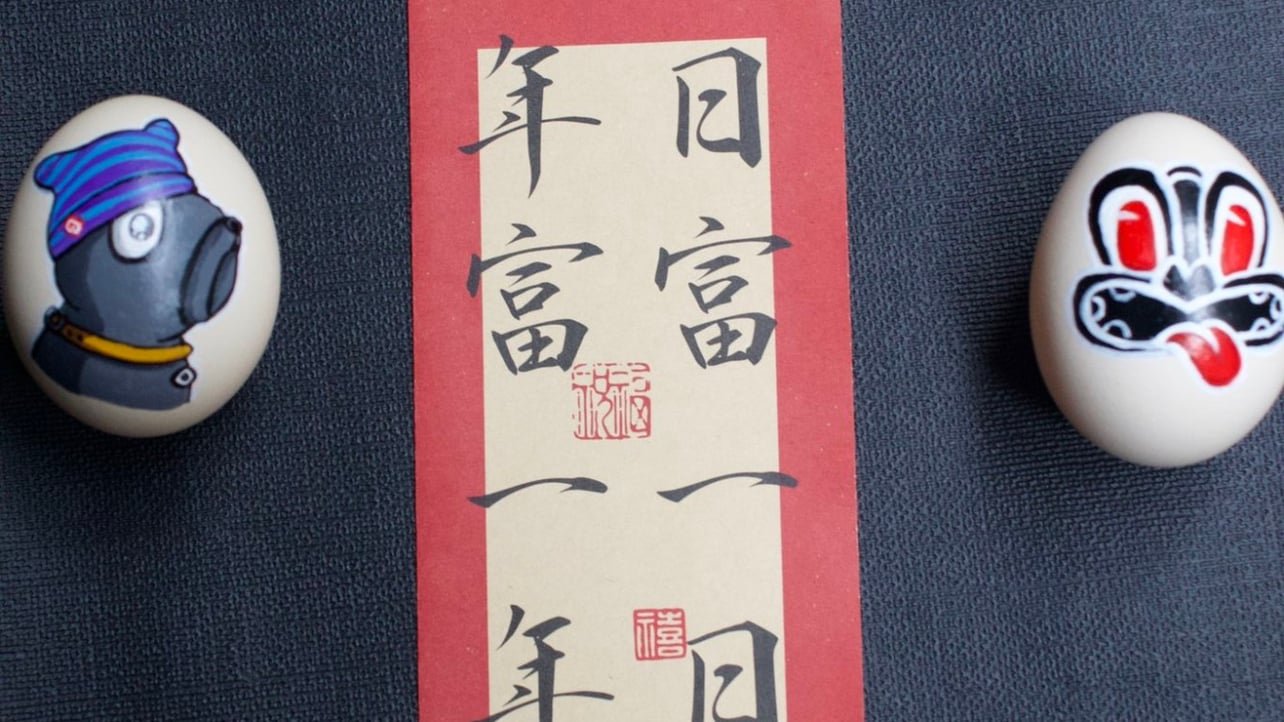 日富一日
年富一年
禧